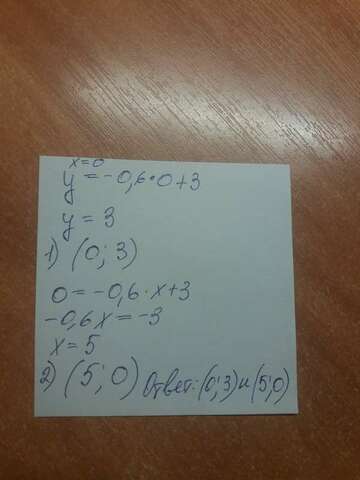 x=0
y=-0,6·0+3
y=3
1) (0; 3)
0=-0,6·x+3
-0,6x=-3
x=5
2) (5; 0) Ответ: (0; 3) и (5; 0)